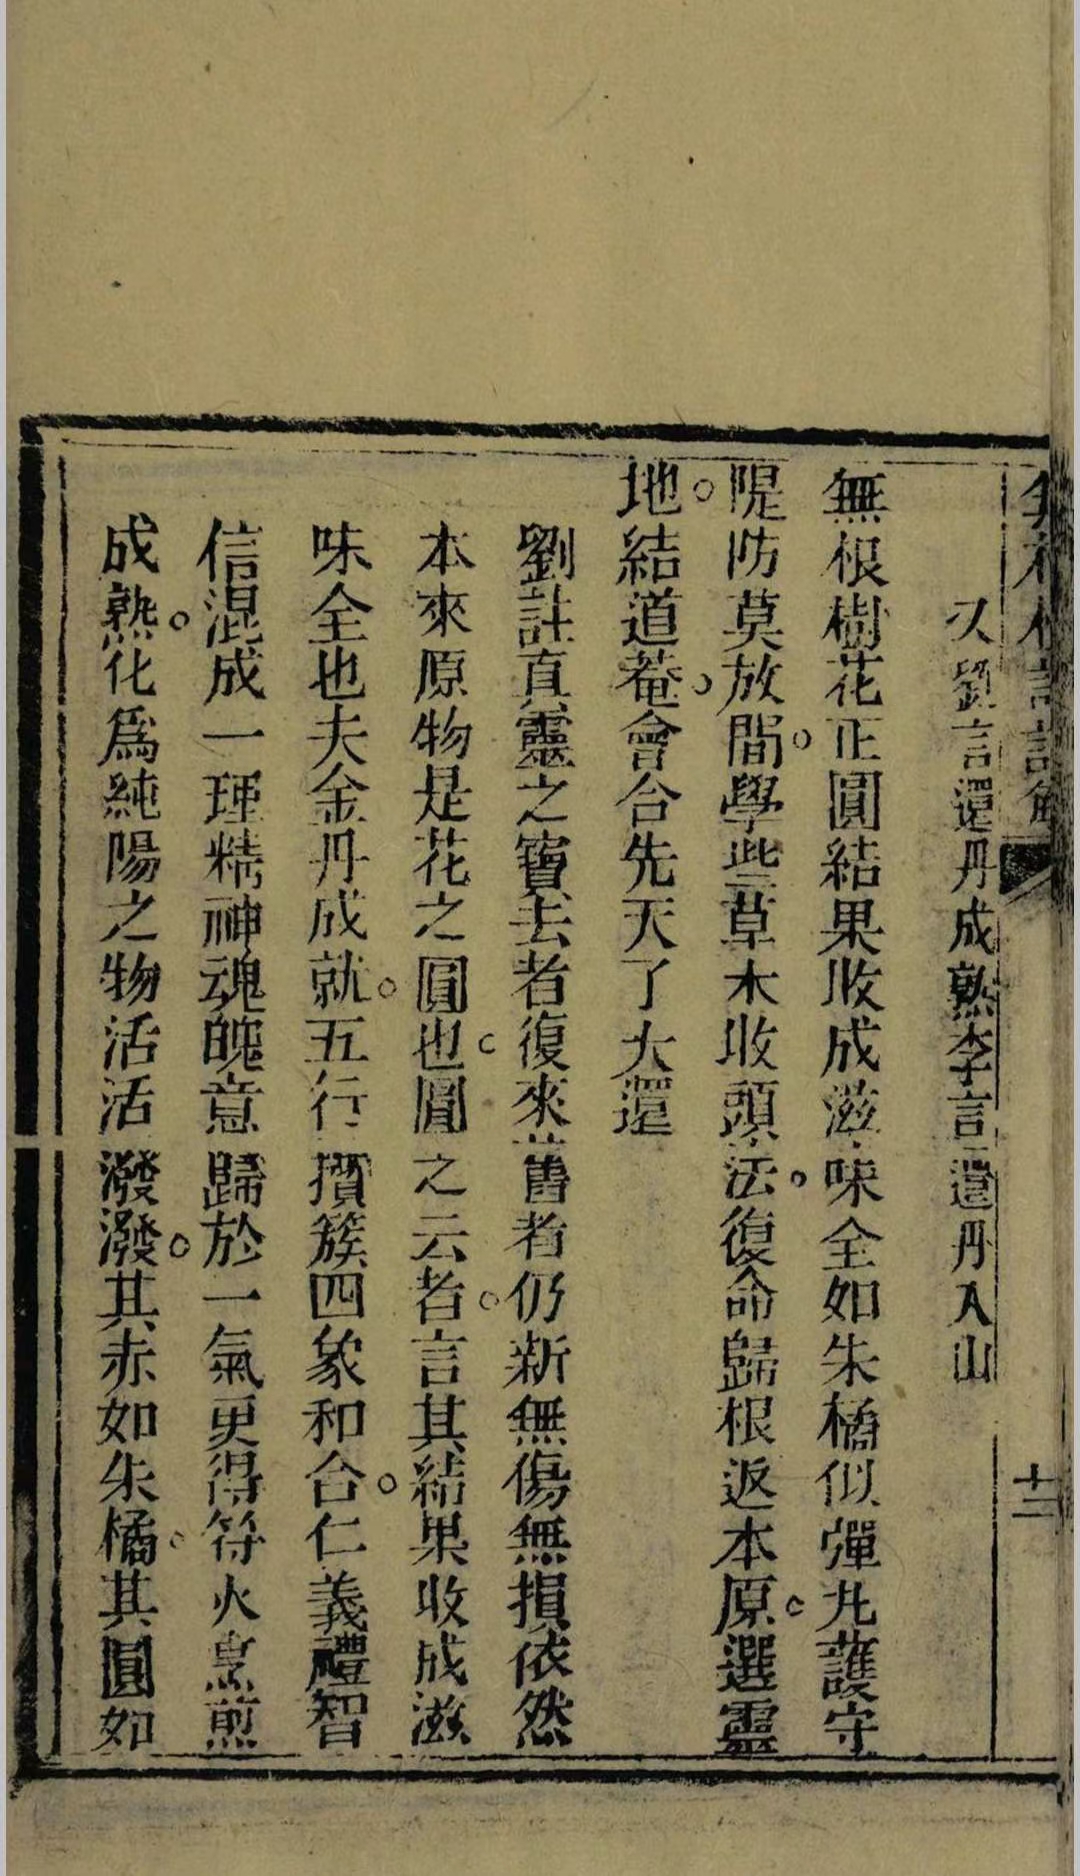 十三
又劉言還丹成熟李言還丹入山
無根樹花正圓結果收成滋味全如朱橘似彈丸護守
隄防莫放閒學些草木收頭法復命歸根返本原選靈
地結道菴會合先天了大還
劉註真靈之寶去者復來舊者仍新無傷無損依然
本來原物是花之圓也圓之云者言其結果收成滋
味全也夫金丹成就五行攢簇四象和合仁義禮智
信混成一理精神魂魄意歸於一氣更得符火烹煎
成熟化爲純陽之物活活潑潑其赤如朱橘其圓如